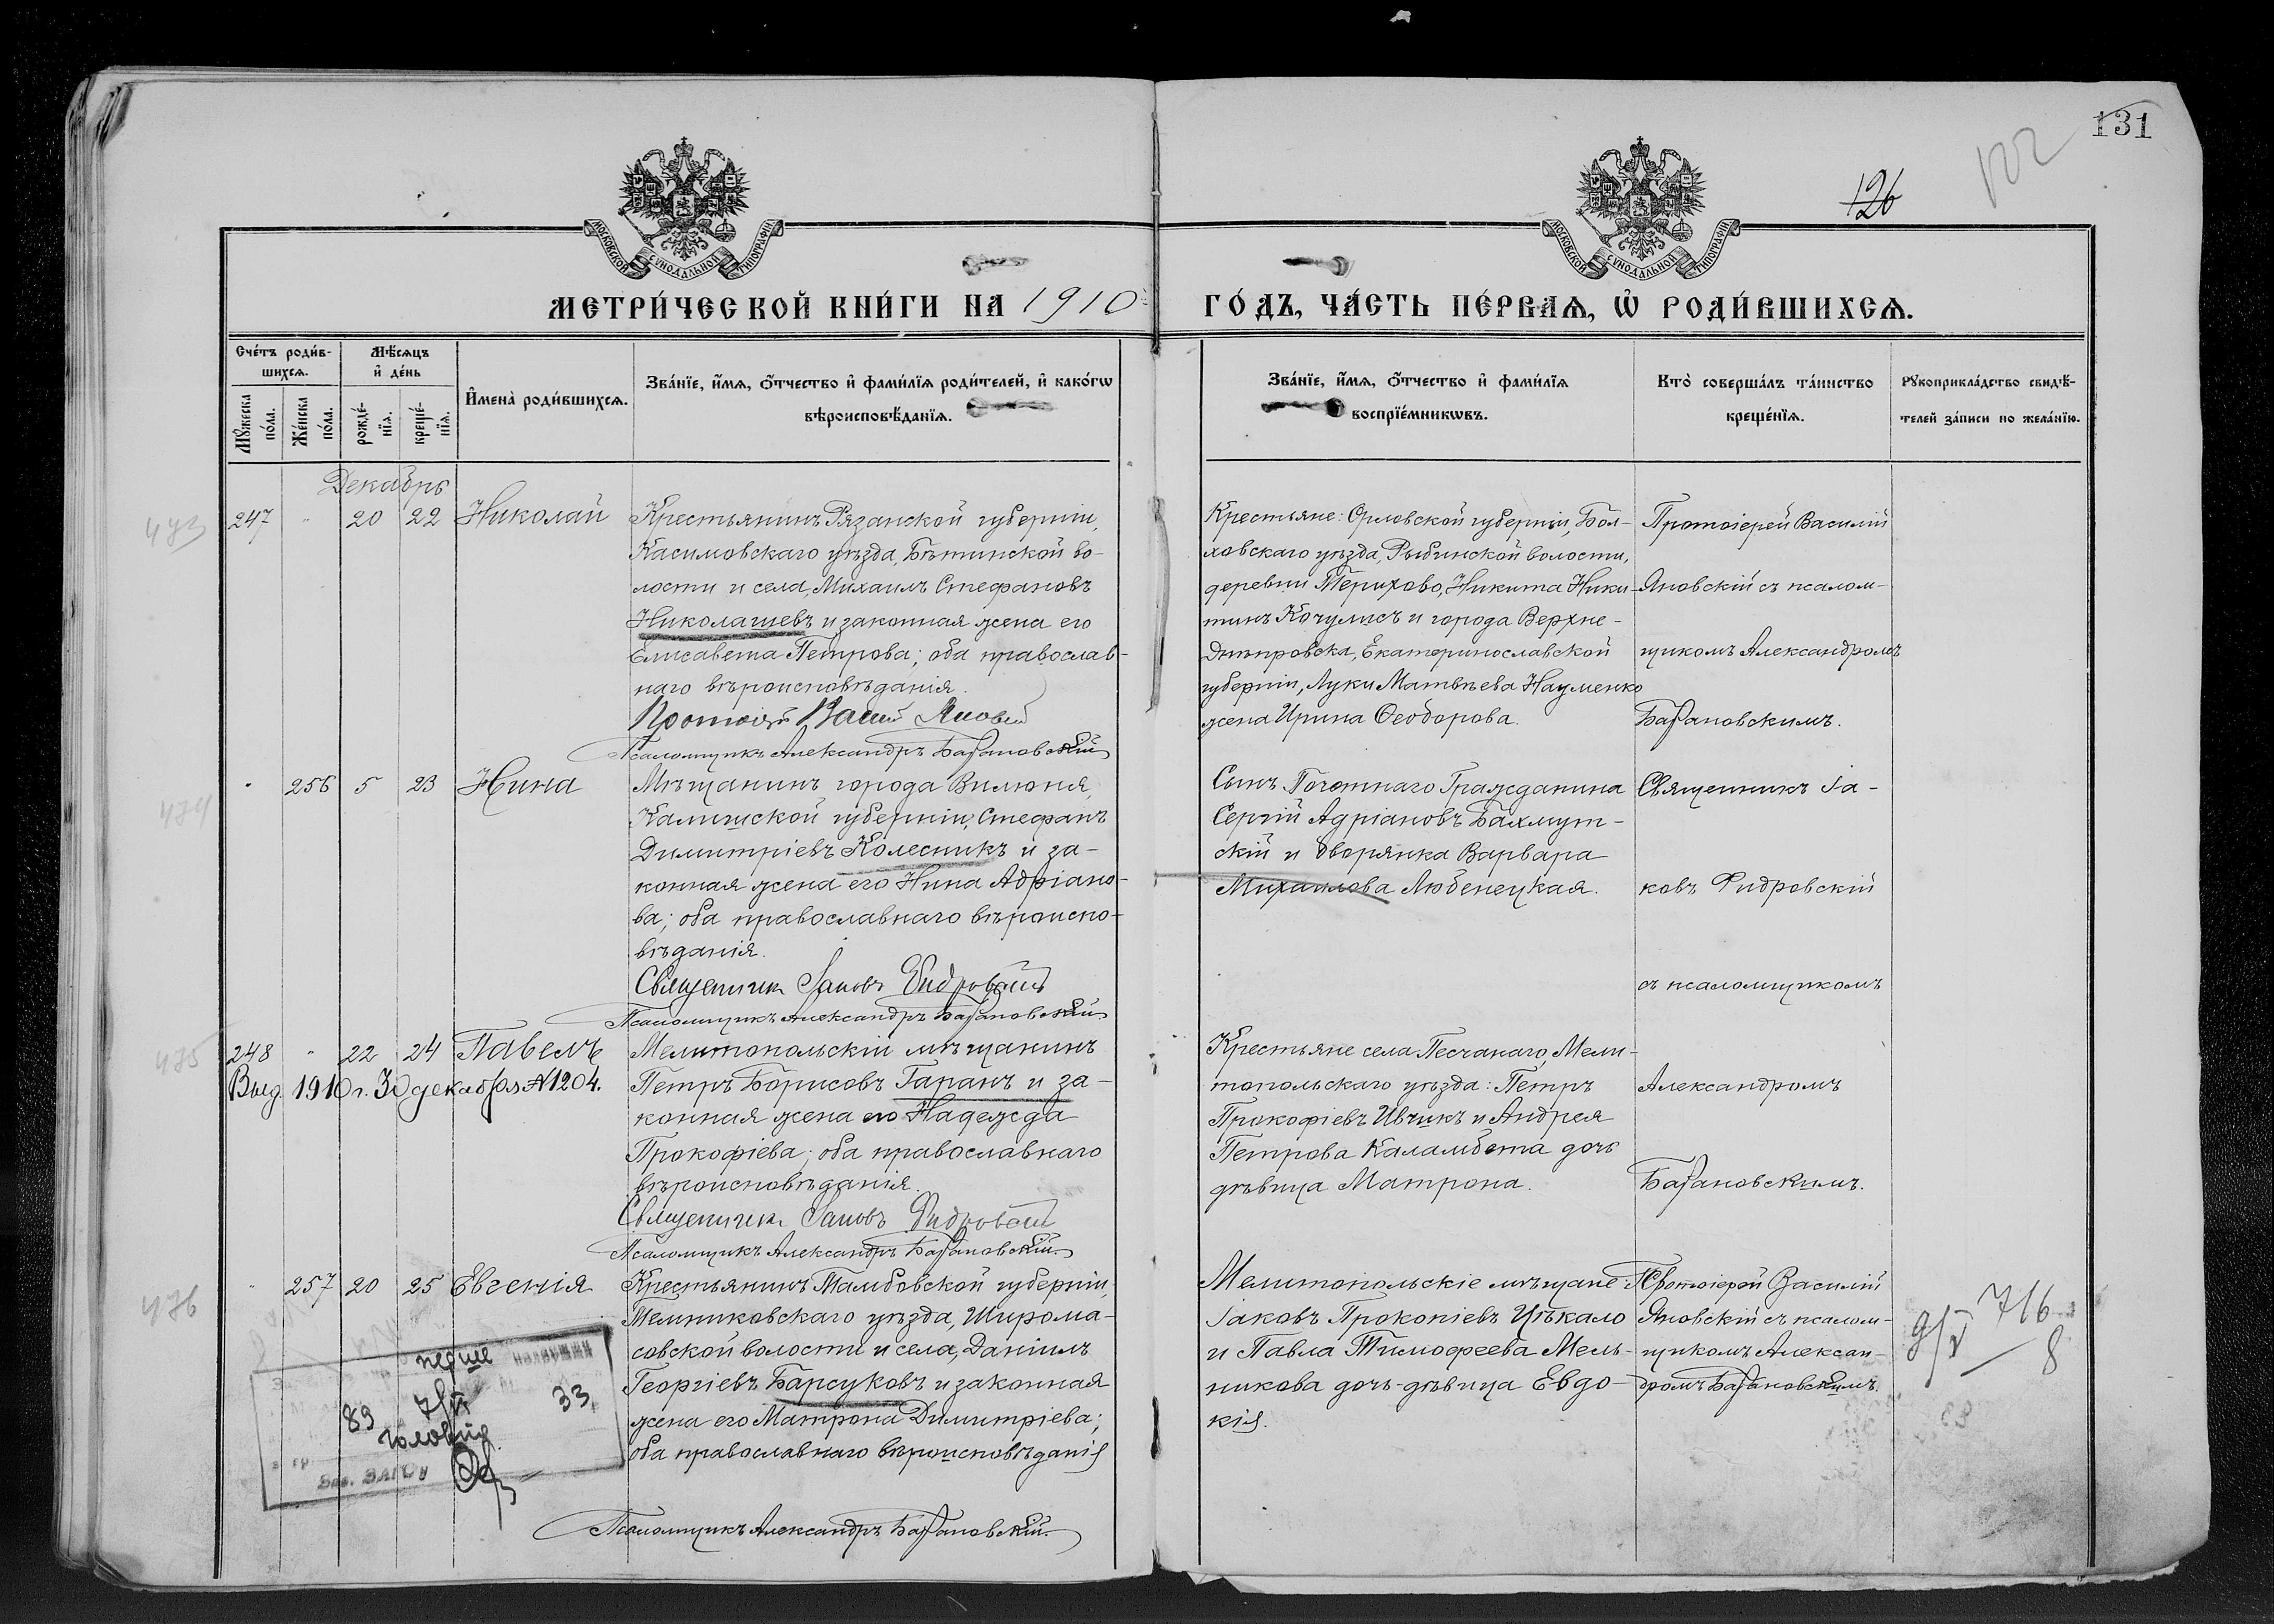 131
122
126
МОСКОВСКОЙ СУНОДАЛЬНОЙ ТИПОГРАФІИ
МОСКОВСКОЙ СУНОДАЛЬНОЙ ТИПОГРАФІИ
МЕТРИ́ЧЕСКОЙ КНИ́ГИ НА 1910
ГО́ДЪ, ЧА́СТЬ ПЕ́РВАѦ, Ѡ҆ РОДИ́ВШИХСѦ.
Сче́тъ роди́в-
шихсѧ.
Мꙋ́жеска по́ла.
Же́нска по́ла.
Мѣ́сѧцъ
и҆ де́нь
рожде́-
нїѧ.
креще́-
нїѧ.
И҆мена̀ роди́вшихсѧ.
Зва́нїе, и҆́мѧ, ѻ҆́тчество и҆ фами́лїѧ роди́телей, и҆ како́гѡ
вѣроисповѣ́данїѧ.
Зва́нїе, и҆́мѧ, ѻ҆́тчество и҆ фами́лїѧ
воспрїе́мникѡвъ.
Кто̀ соверша́лъ та́инство
креще́нїѧ.
Рꙋкоприкла́дство свидѣ́-
телей за́писи по жела́нїю.
Декабрь
473
247 " 20 22 Николай
Крестьянинъ Рязанской губерніи,
Касимовскаго уѣзда, Бѣтинской во-
лости и села, Михаилъ Стефановъ
Николашевъ и законная жена его
Елисавета Петрова; оба православ-
наго вѣроисповѣданія.
Протоіерей Василій Яновскій
Псаломщикъ Александръ Барановскій
Крестьяне: Орловской губерніи, Бол-
ховскаго уѣзда, Рыбинской волости,
деревни Терихово, Никита Ники-
тинъ Кочулисъ и города Верхне-
Днѣпровска, Екатеринославской
губерніи, Луки Матвѣева Науменко
жена Ирина Ѳеодорова.
Протоіерей Василій
Яновскій съ псалом-
щикомъ Александромъ
Барановскимъ.
474
" 256 5 23 Нина
Мѣщанинъ города Вилюня,
Калишской губерніи, Стефанъ
Димитріевъ Колесникъ и за-
конная жена его Нина Адріано-
ва; оба православнаго вѣроиспо-
вѣданія.
Священникъ Іаковъ Ѳидровскій
Псаломщикъ Александръ Барановскій
Сынъ Почотнаго Гражданина
Сергій Адріановъ Бахмут-
скій и дворянка Варвара
Михаилова Любенецкая.
Священникъ Іа-
ковъ Ѳидровскій
съ псаломщикомъ
475
248 " 22 24 Павелъ
Выд. 1910 г. 30 декабря №1204.
Мелитопольскій мѣщанинъ
Петръ Борисовъ Гаранъ и за-
конная жена его Надежда
Прокофіева; оба православнаго
вѣроисповѣданія.
Священникъ Іаковъ Ѳидровскій
Псаломщикъ Александръ Барановскій.
Крестьяне села Песчанаго, Мели-
топольскаго уѣзда: Петръ
Прокофіевъ Ивчикъ и Андрея
Петрова Каламбета дочь
дѣвица Матрона.
Александромъ
Барановскимъ.
476
" 257 20 25 Евгенія
Крестьянинъ Тамбовской губерніи,
Темниковскаго уѣзда, Широма-
совской волости и села, Даніилъ
Георгіевъ Барсуковъ и законная
жена его Матрона Димитріева;
оба православнаго вѣроисповѣданія
Псаломщикъ Александръ Барановскій.
Мелитопольскіе мѣщане:
Іаковъ Прокопіевъ Цѣкало
и Павла Тимофеева Мель-
никова дочь-дѣвица Евдо-
кія.
Протоіерей Василій
Яновскій съ псалом-
щикомъ Алексан-
дромъ Барановскимъ.
716
8
перше
89
33
Зав. ЗАГСу